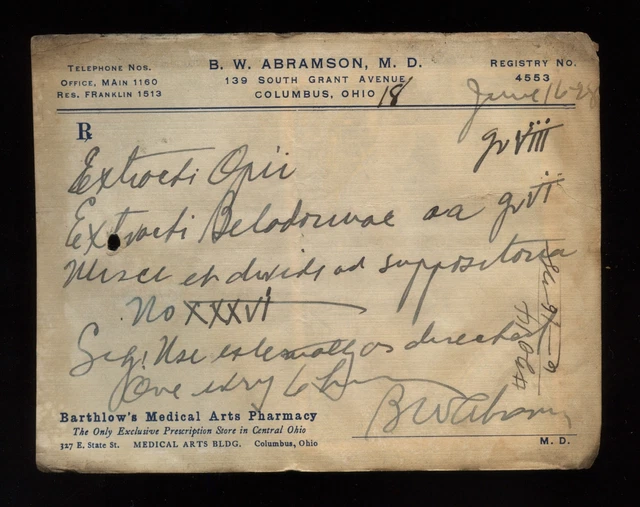 TELEPHONE NOS.
OFFICE, MAIN 1160
RES. FRANKLIN 1513
B. W. ABRAMSON, M. D.
139 SOUTH GRANT AVENUE
COLUMBUS, OHIO 18
REGISTRY NO.
4553
June 16-28
℞
Extracti Opii gr viii
Extracti Beladonnae aa gr vi
Misce et divide ad suppositoria
No XXXVI
Sig: Use externally as directed
One every 6 h
BW Abramson
M. D.
Barthlow's Medical Arts Pharmacy
The Only Exclusive Prescription Store in Central Ohio
327 E. State St. MEDICAL ARTS BLDG. Columbus, Ohio